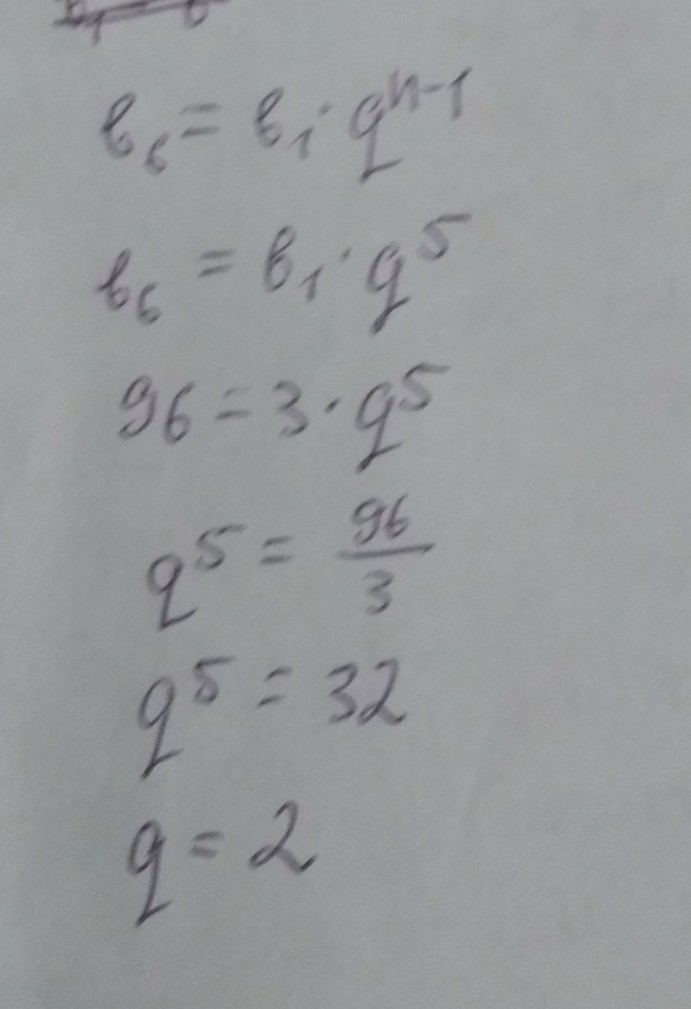 в₆ = в₁ · qⁿ⁻¹
в₆ = в₁ · q⁵
96 = 3 · q⁵
q⁵ = 96/3
q⁵ = 32
q = 2